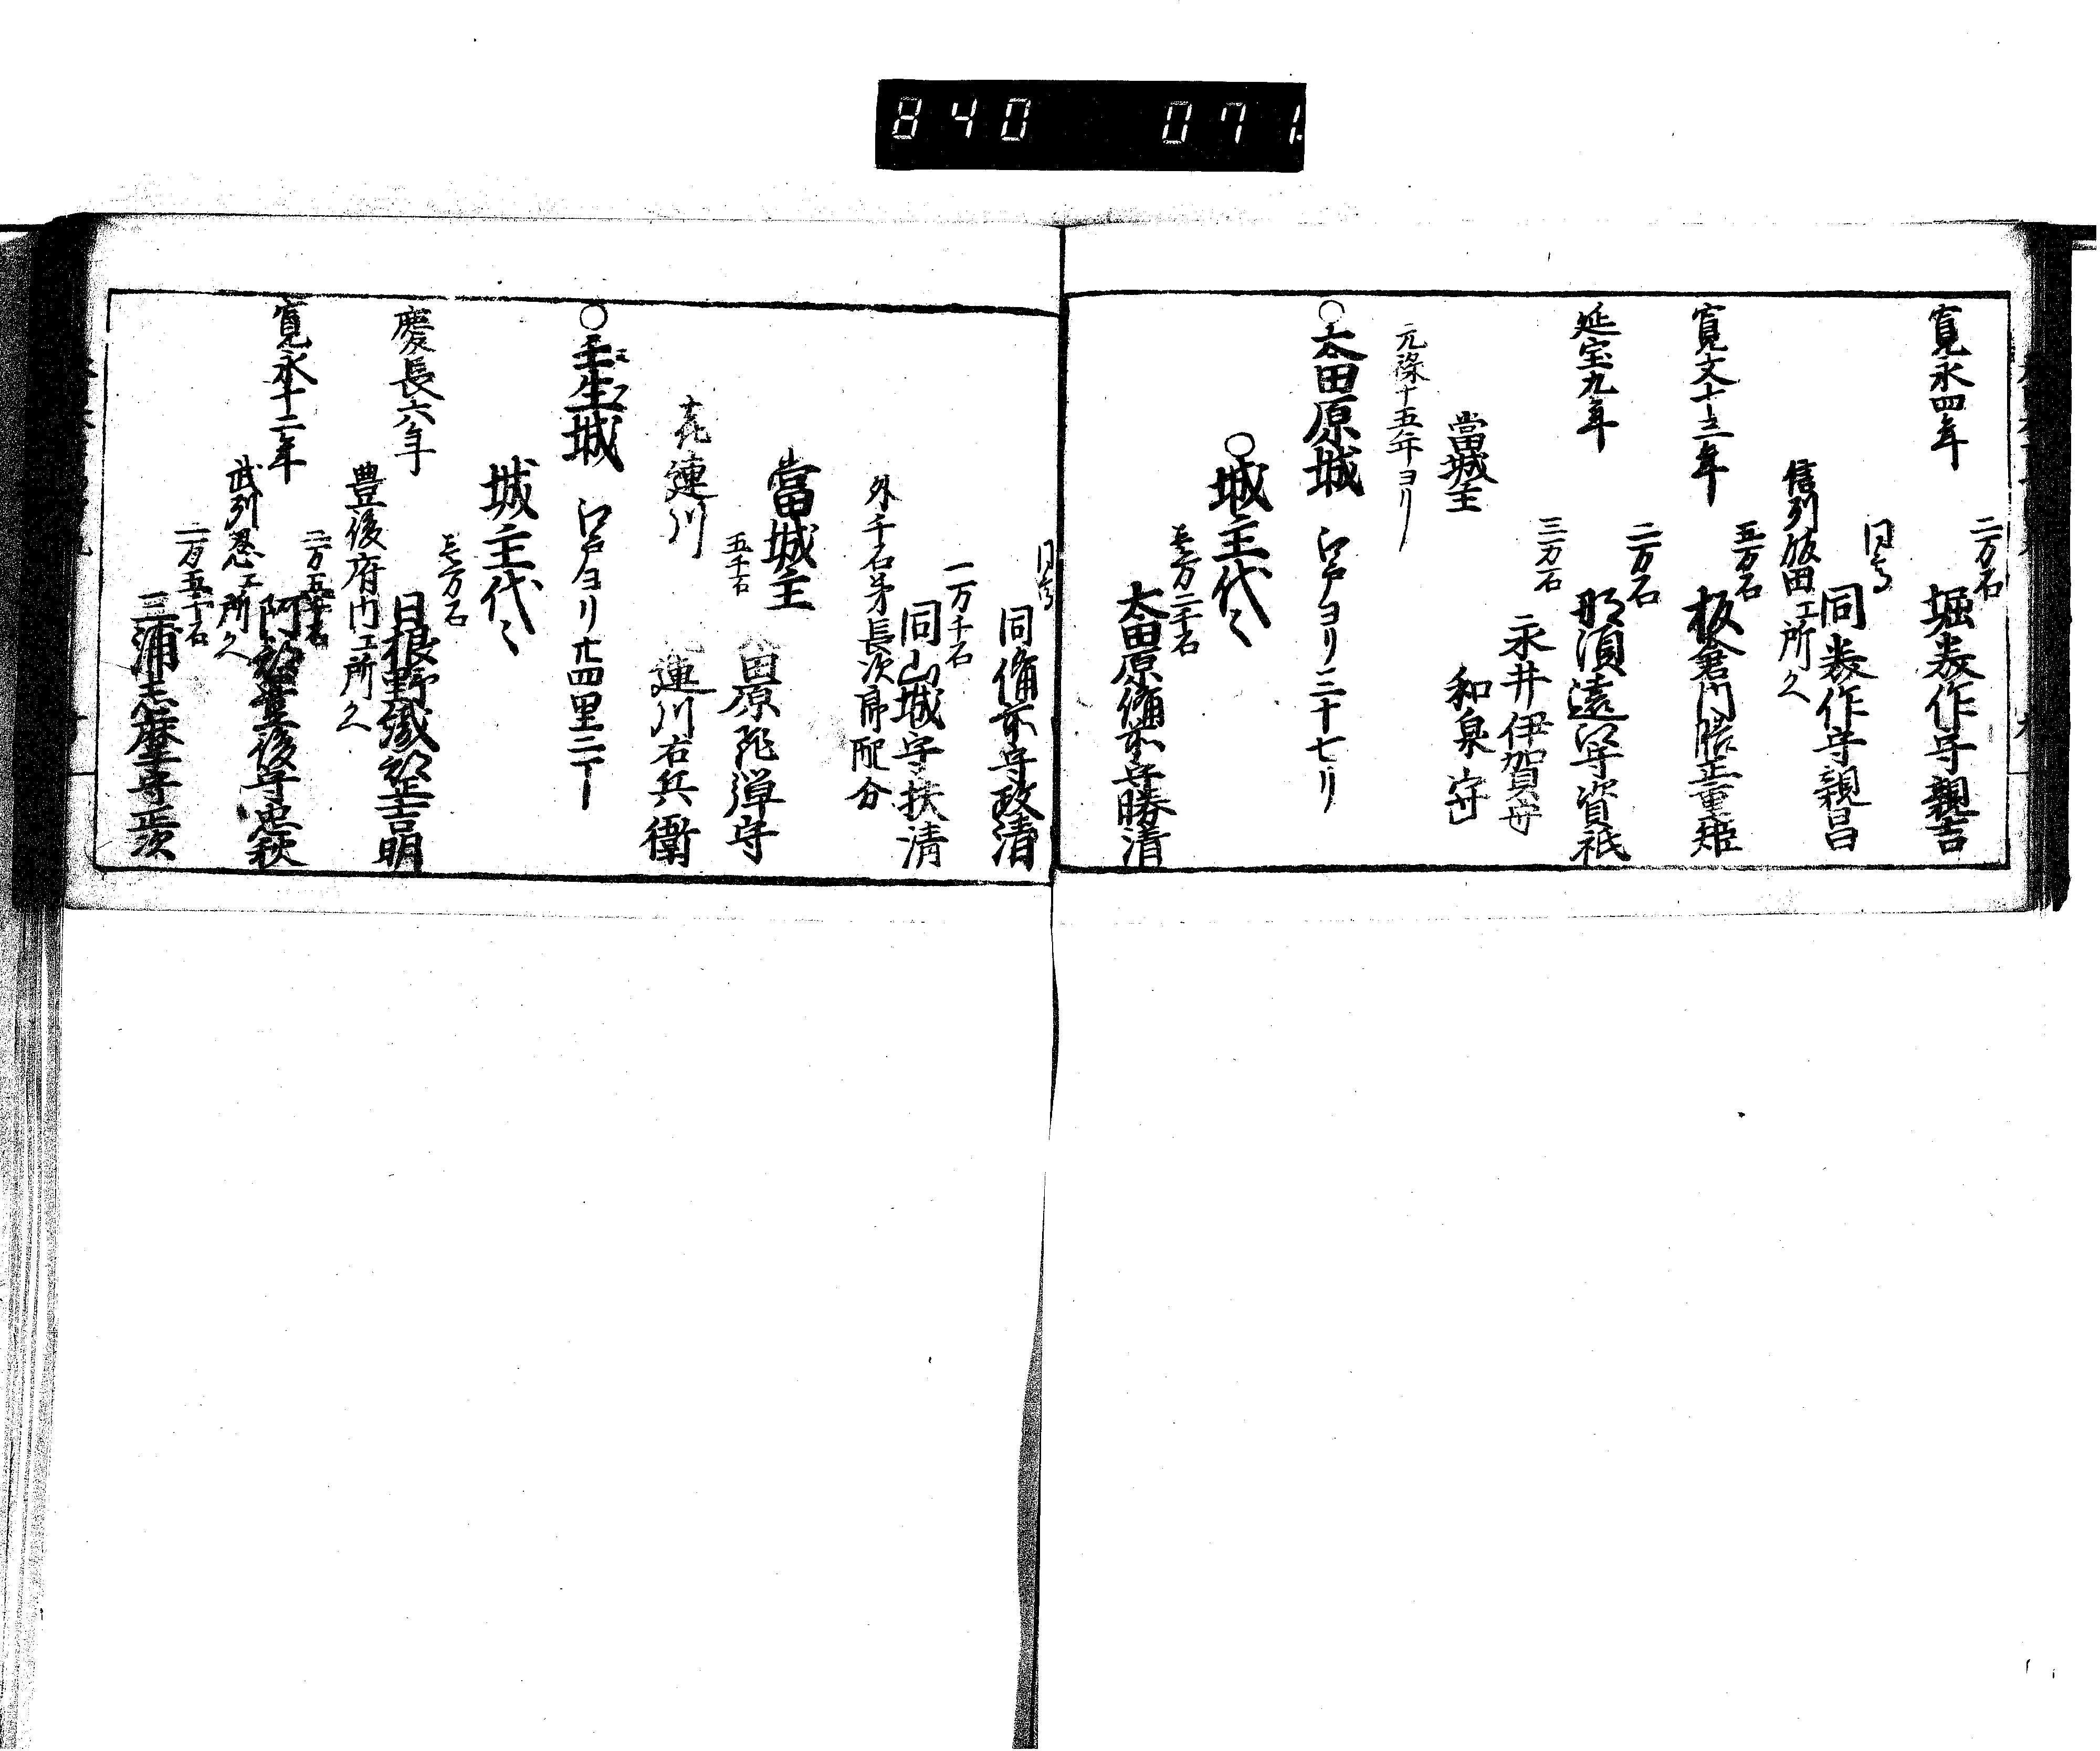 840 071
寛永四年
二万石
堀美作守親吉
同高
同美作守親昌
信州飯田エ所久
寛文十三年
五万石
板倉内膳正重矩
延宝九年
二万石
那須遠江守資祇
三万石
永井伊賀守
當城主
和泉守
元禄十五年ヨリ
○太田原城 江戸ヨリ三十七リ
○城主代々
壱万二千石
太田原備前守勝清
同高
同備前守政清
一万千石
同山城守扶清
外千石弟長次郎配分
當城主
田原飛弾守
五千石
喜連川
連川右兵衛
○壬生城 江戸ヨリ廿四里二丁
ミフ
城主代々
壱万石
慶長六年
日根野織部正吉明
豊後府内エ所久
寛永十二年
二万五千石
阿部豊後守忠秋
武州忍エ所久
二万五千石
三浦志摩守正次